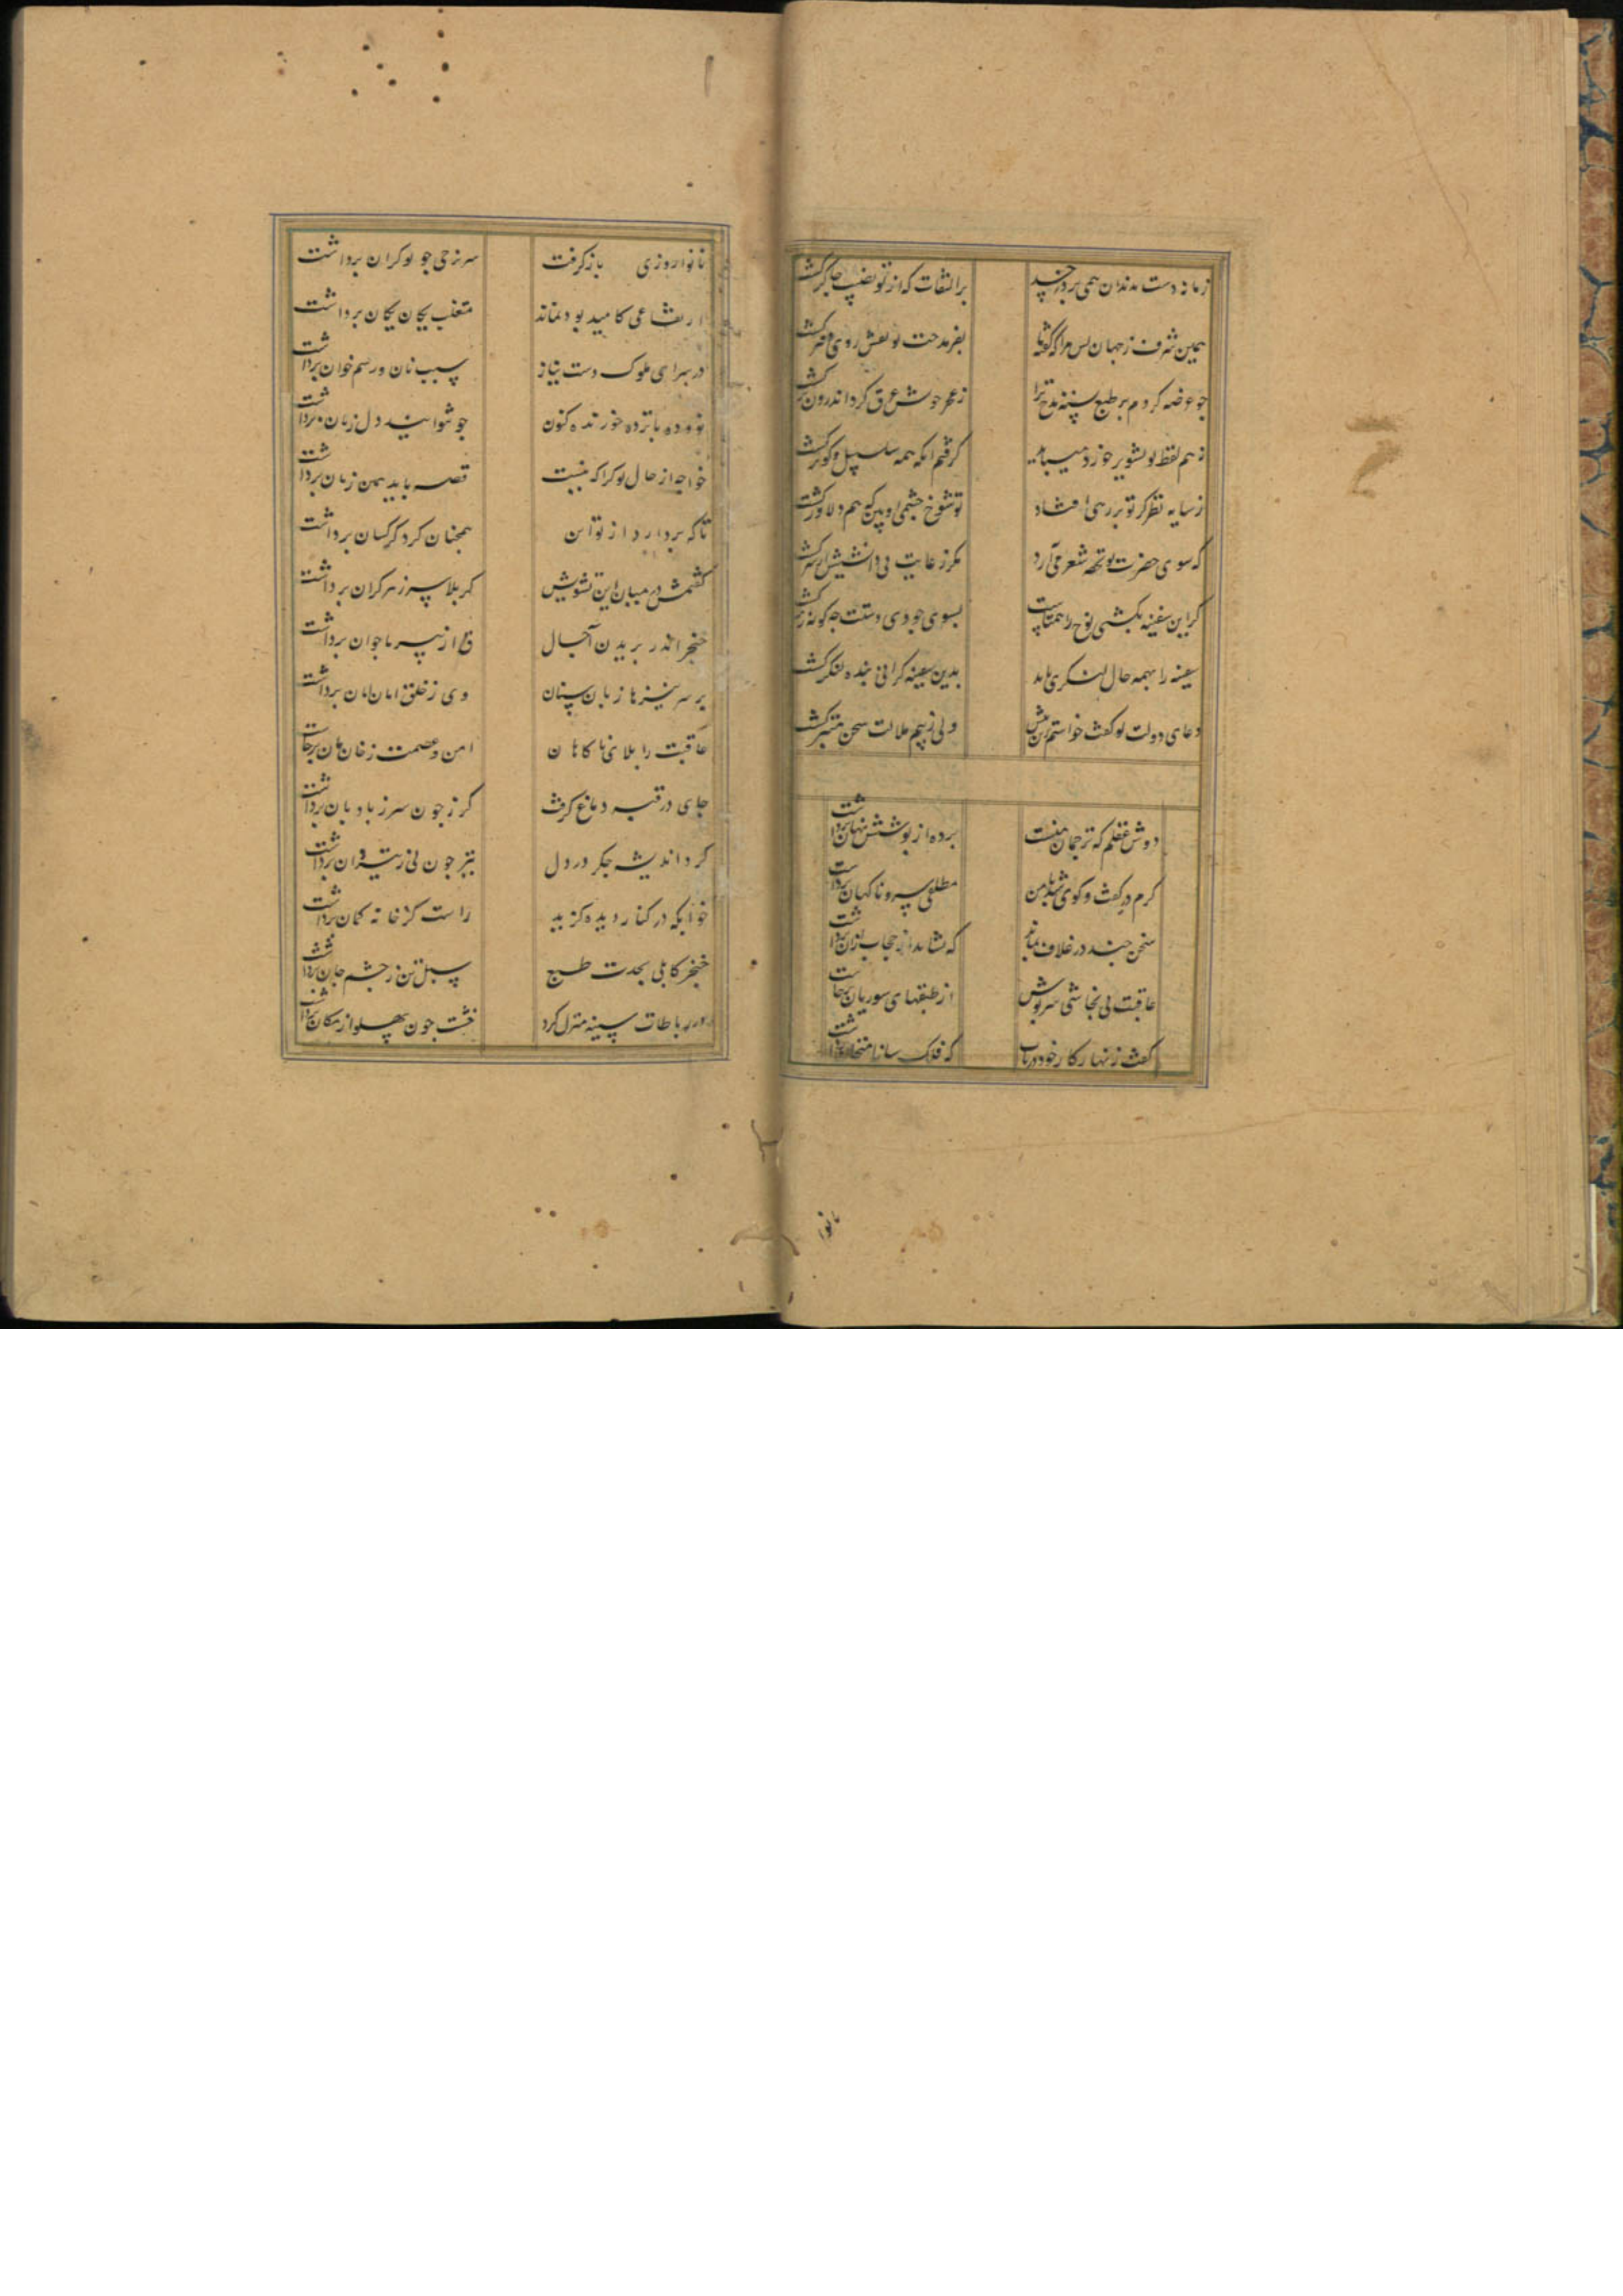 زمانه دست بدندان همی برد هر چند
بر التفات که از تو نصیب چاکر گشت
همین شرف ز جهان بس مرا که گفته
بفر مدحت تو نقش روی دفتر گشت
چو عرضه کردم بر طبع سفینه مدح ترا
ز عجز خوش عرق کرد و اندرون تر گشت
ز هم لفظ تو تشویر خورد
گرفتم آنکه همه سلسبیل و کوثر گشت
ز سایه نظر کز تو بر رهی افتاد
تو شوخ چشمی او بین که هم دلاور گشت
که سوی حضرت تو تحفه شعر می آرد
مگر ز غایت بی دانشیش
گر این سفینه بکشتی نوح راهمتاست
بسوی جودی دستت چگونه
سفینه را بهمه حال لنگری باید
بدین سفینه گرانی بنده لنگر گشت
دعای دولت تو گفت خواستم زین بیش
ولی ز بیم ملالت سخن گشت
دوش عقلم که ترجمان منست
پرده از پوشش نهان برداشت
گرم در گفت و گوی شد با من
مطلعی پس و ناگهان برداشت
سخن چند در غلاف بماند
که نشاید حجاب از آن برداشت
عاقبت بی تحاشی سرپوش
از طبقهای سوزیان برخاست
گفت زنهار کار خود دریاب
که فلک
نانوا
نانوا روزی بازگرفت
سر نرخی چو تو گران برداشت
ارتفاعی کامید بود نماند
متغلب یکان یکان برداشت
در سرای ملوک دست نیاز
سبب نان و رسم خوان برداشت
تو و ده بانزده خور نده کنون
چو توانید دل ز نان برداشت
خواجه از حال تو کرا که نیست
قصه باید همین زمان برداشت
تا که بردارد از تو این
همچنان کرد کز کسان برداشت
کشمش در میان این تشویش
کز بلا سر ز هر کران برداشت
خنجر اندر بریدن آجال
از پیر تا جوان برداشت
بر سر نیزها زبان سنان
وی ز خلق امان امان برداشت
عاقبت را بلای ناگاهان
امن و عصمت ز خان مان برخاست
جای در قبه دماغ گرفت
گرز چون سر ز بادبان برداشت
کرد اندیشه جگر در دل
تیر چون پی ز برداشت
خوابگه در کنار دیده گزید
راست کز خانه کمان برداشت
خنجر کابلی بحدت طبع
سبل تن ز چشم جان برداشت
در رباطات سینه منزل کرد
خشت چون پهلو از مکان برداشت